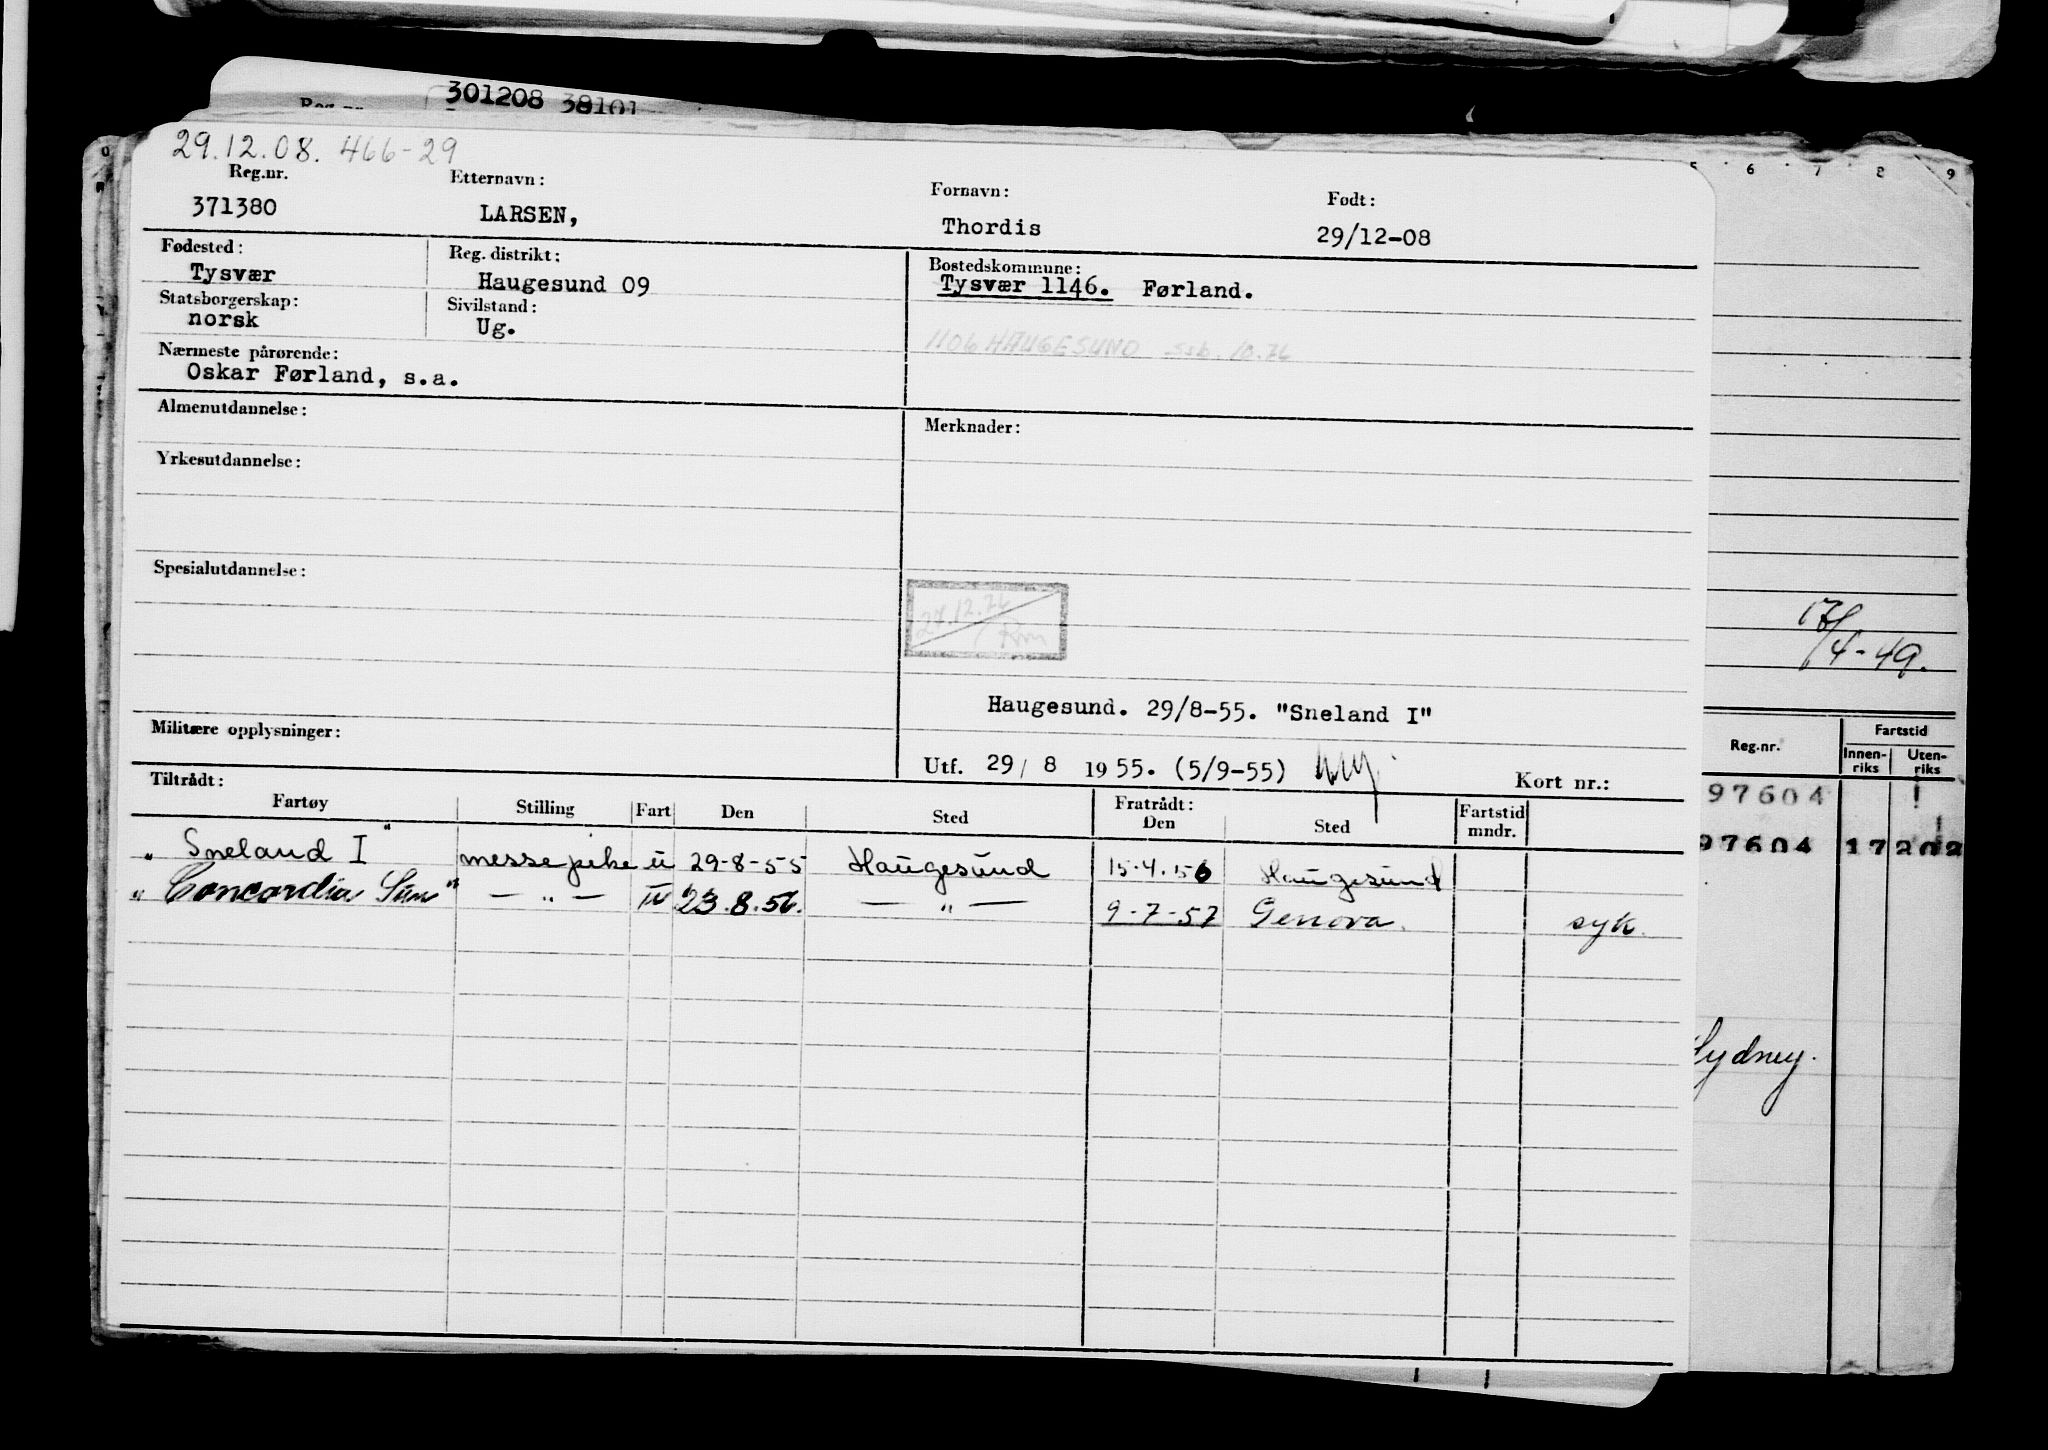 301208 38101
Reg.nr.
29.12.08. 466-29
Reg.nr. Etternavn: Fornavn: Født:
371380 LARSEN, Thordis 29/12-08
Fødested: Reg. distrikt: Bostedskommune:
Tysvær Haugesund 09 Tysvær 1146. Førland.
Statsborgerskap: Sivilstand:
norsk Ug.
1106 HAUGESUND ssb. 10.76
Nærmeste pårørende:
Oskar Førland, s.a.
Almenutdannelse: Merknader:
Yrkesutdannelse:
Spesialutdannelse:
27.12.76
Haugesund. 29/8-55. "Sneland I"
Militære opplysninger:
Utf. 29/ 8 1955. (5/9-55) Kort nr.:
Tiltrådt: Fratrådt:
Fartøy Stilling Fart Den Sted Den Sted Fartstid mndr.
"Sneland I" messepike u 29-8-55 Haugesund 15.4.56 Haugesund
"Concordia Sun" — " — u 23.8.56. — " — 9-7-57 Genova. syk.
5 6 7 8 9
/4-49.
Reg.nr. Fartstid
Innen-riks Uten-riks
97604
97604 17 202
Sydney.